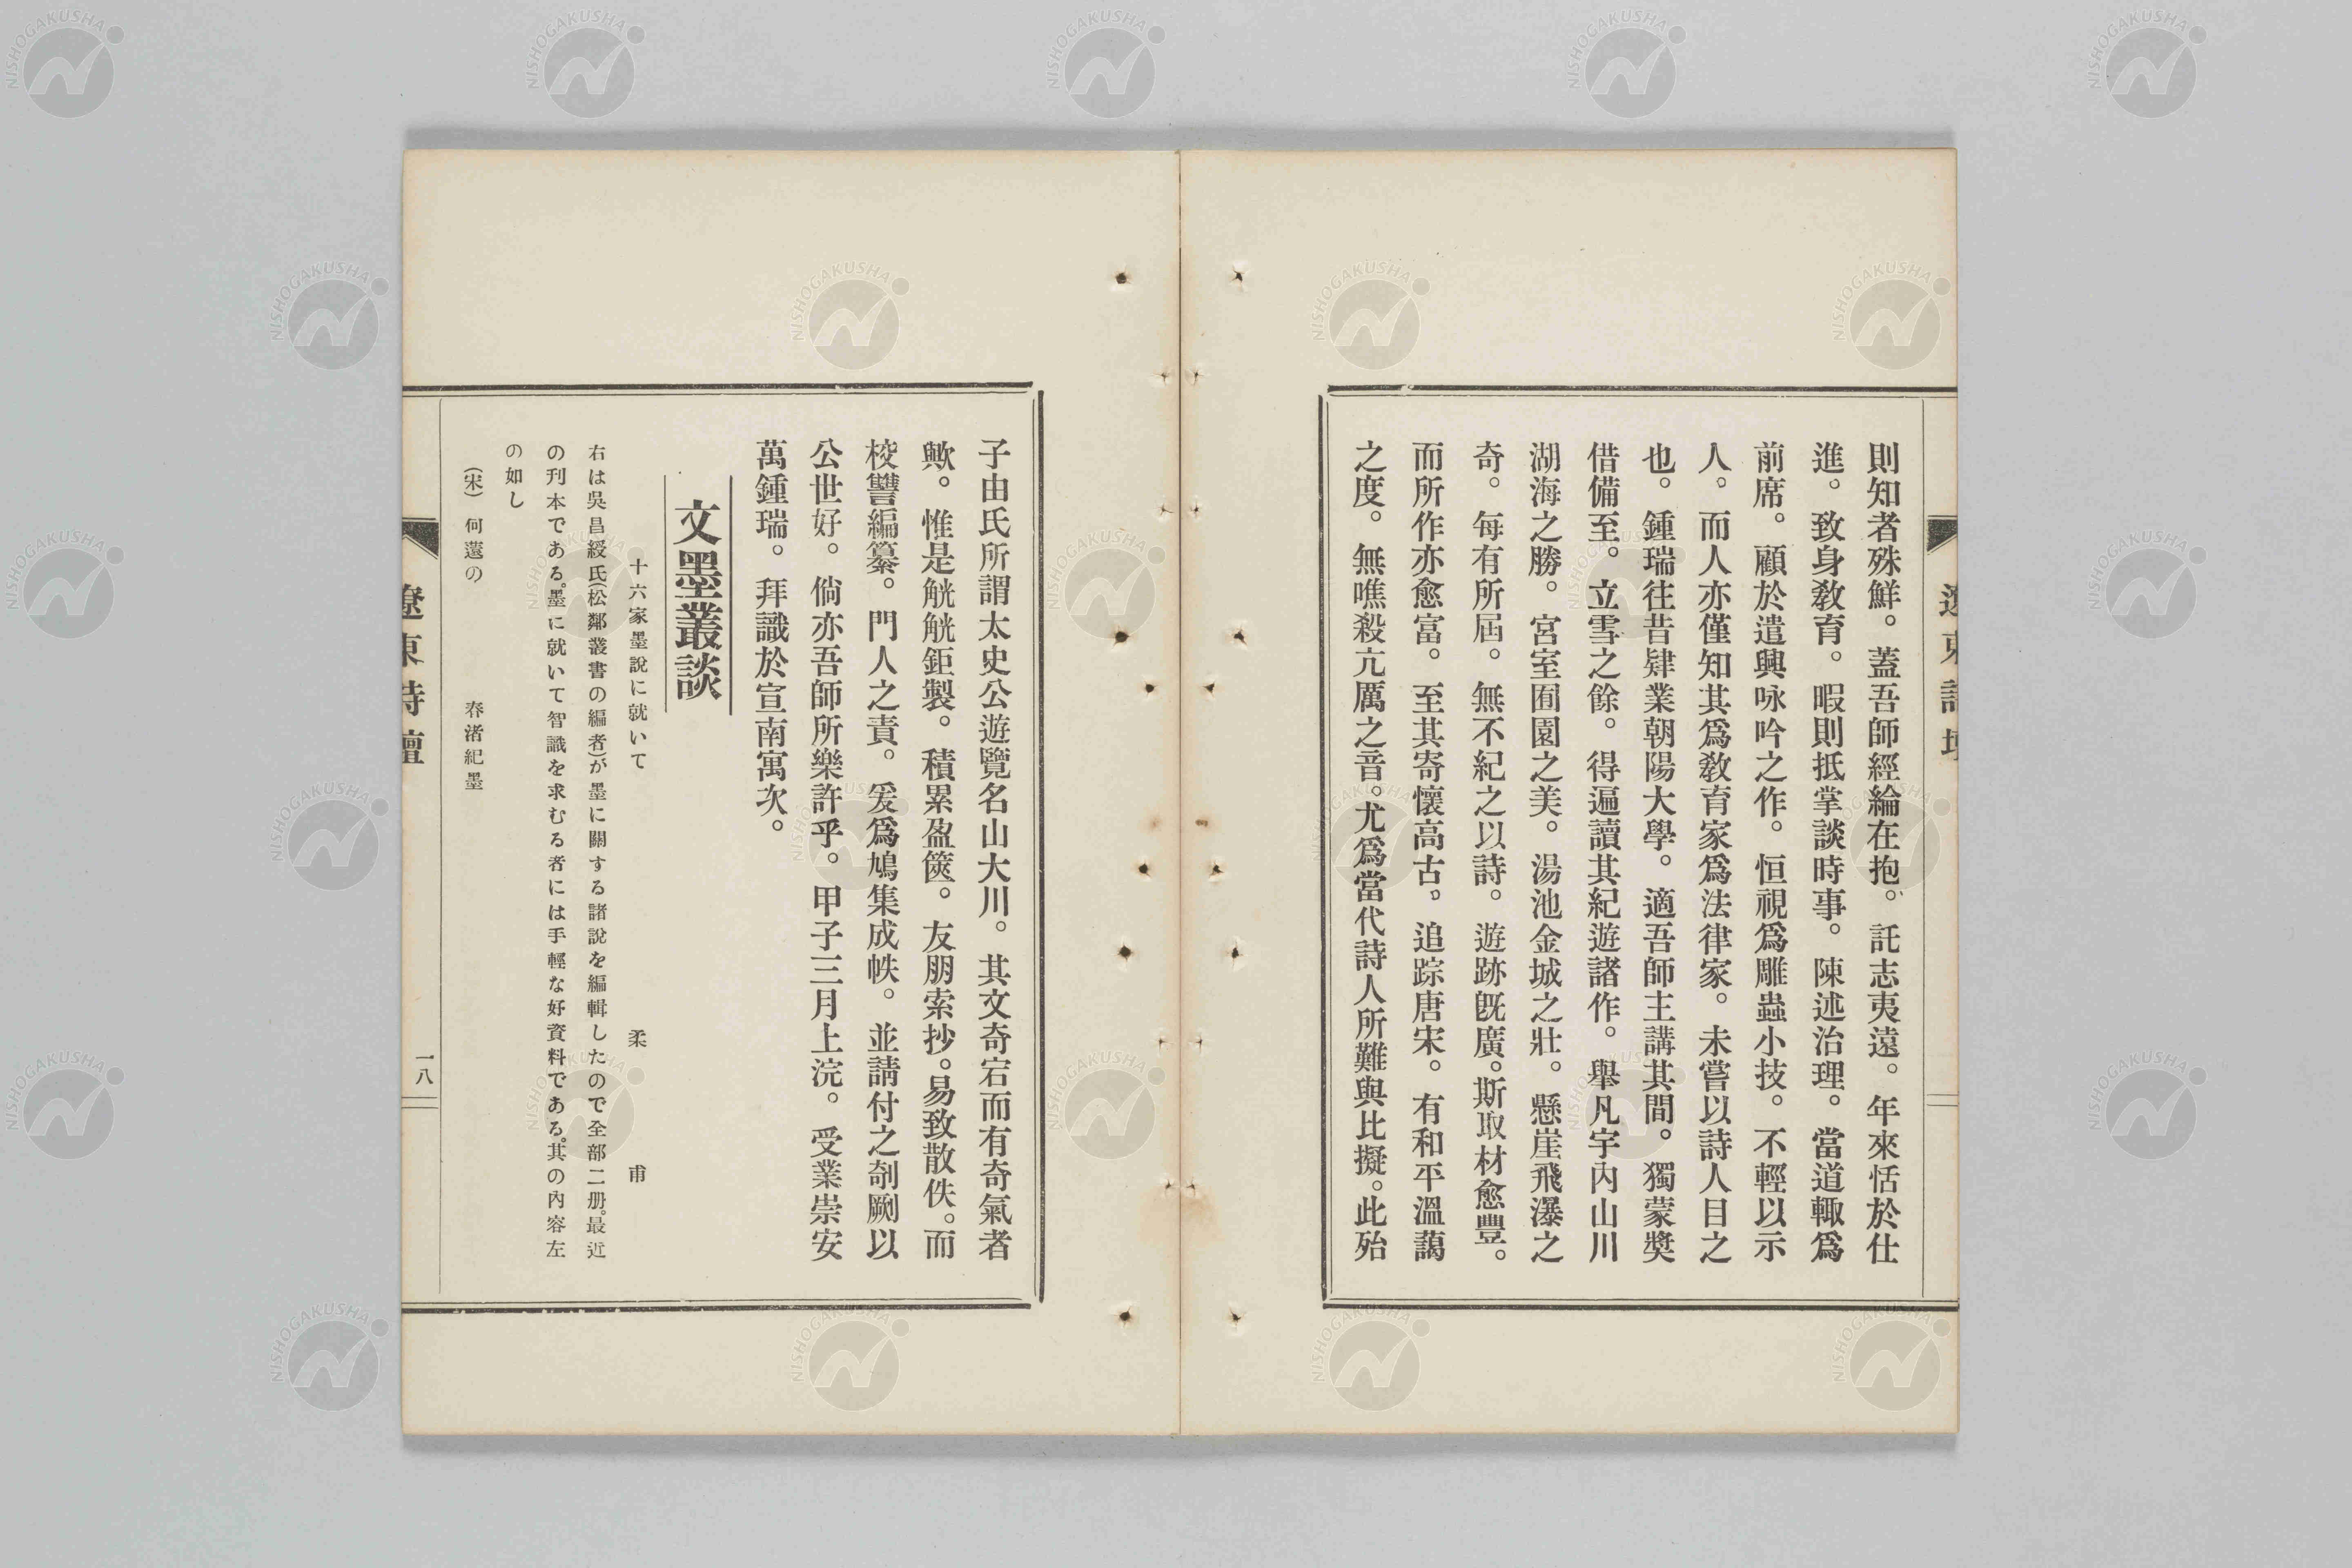 則知者殊鮮。蓋吾師經綸在抱。託志夷遠。年來恬於仕
進。致身敎育。暇則抵掌談時事。陳述治理。當道輙爲
前席。顧於遣興咏吟之作。恒視爲雕蟲小技。不輕以示
人。而人亦僅知其爲敎育家爲法律家。未嘗以詩人目之
也。鍾瑞往昔肄業朝陽大學。適吾師主講其間。獨蒙奬
借備至。立雪之餘。得遍讀其紀遊諸作。舉凡宇內山川
湖海之勝。宮室囿園之美。湯池金城之壯。懸崖飛瀑之
奇。每有所屆。無不紀之以詩。遊跡旣廣。斯取材愈豐。
而所作亦愈富。至其寄懷高古。追踪唐宋。有和平溫藹
之度。無噍殺亢厲之音。尤爲當代詩人所難與比擬。此殆
子由氏所謂太史公遊覽名山大川。其文奇宕而有奇氣者
歟。惟是觥觥鉅製。積累盈篋。友朋索抄。易致散佚。而
校讐編纂。門人之責。爰爲鳩集成帙。並請付之剞劂以
公世好。倘亦吾師所樂許乎。甲子三月上浣。受業崇安
萬鍾瑞。拜識於宣南寓次。
文墨叢談
十六家墨說に就いて 柔甫
右は吳昌綬氏(松鄰叢書の編者)が墨に關する諸說を編輯したので全部二册。最近
の刊本である。墨に就いて智識を求むる者には手輕な好資料である。其の內容左
の如し
(宋) 何薳の 春渚紀墨
遼東詩壇 一八